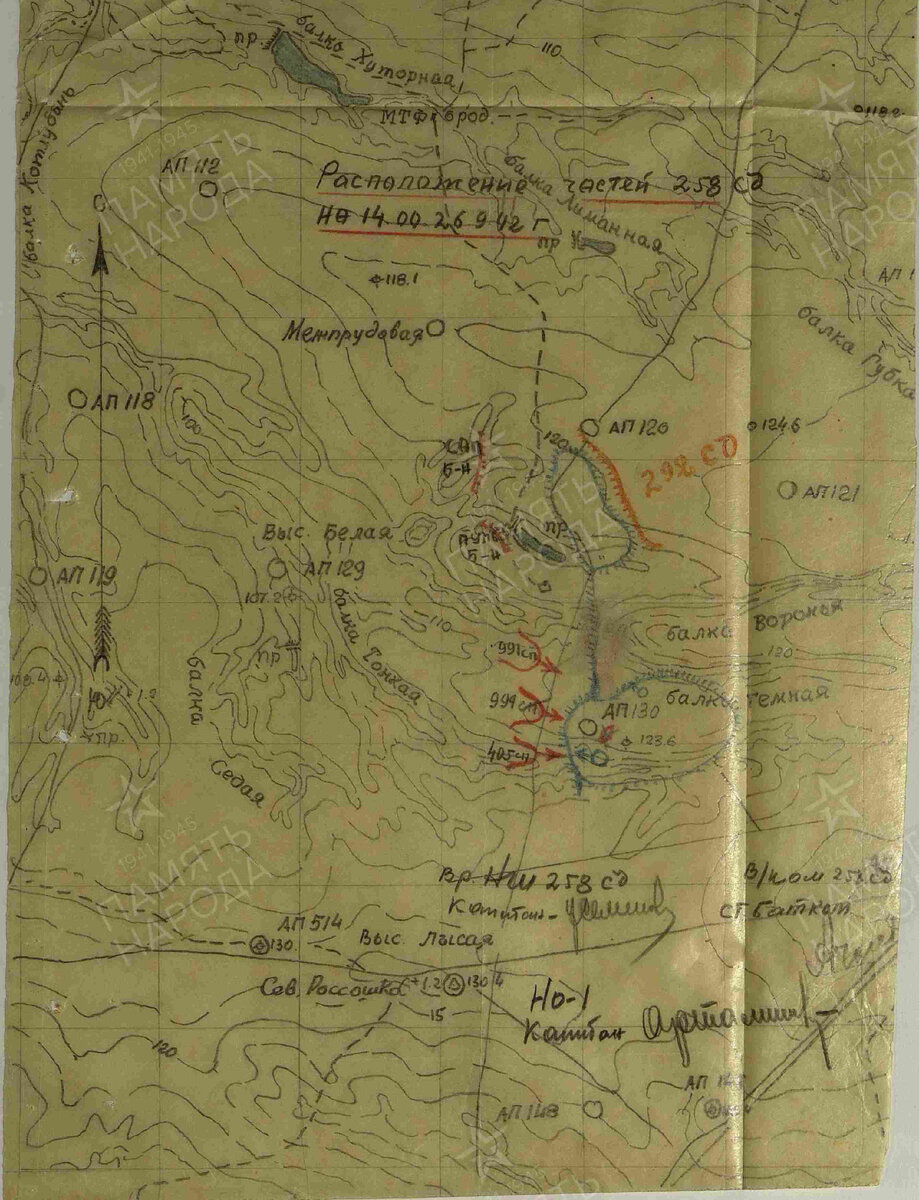 балка Хуторная
пр.
110
балка Котлубань
МТФ брод.
118.2
АП 112
Расположение частей 258 сд
на 14.00 26 9 42 г
балка Лиманная
пр
С
118.1
АП 1
Межпрудовая
балка Губка
АП 118
100
АП 120
120
124.6
САП
Б-Н
292 СД
АП 121
Выс. Белая
пр.
Б-Н
АП 119
АП 129
107.2
110
балка Тонкая
балка Вороная
991 сп
120
пр
балка
Седая
Ю
1.2
пр.
991 сп
балка Темная
АП 130
123.6
405 сп
Вр. НШ 258 сд
Капитан
В/ком 258 сд
ст. батком
АП 514
130.
Выс. Лысая
Сев. Россошка
+1.2
130.4
15
НО-1
Капитан
120
АП 148
АП 14
ПАМЯТЬ
НАРОДА
1941-1945